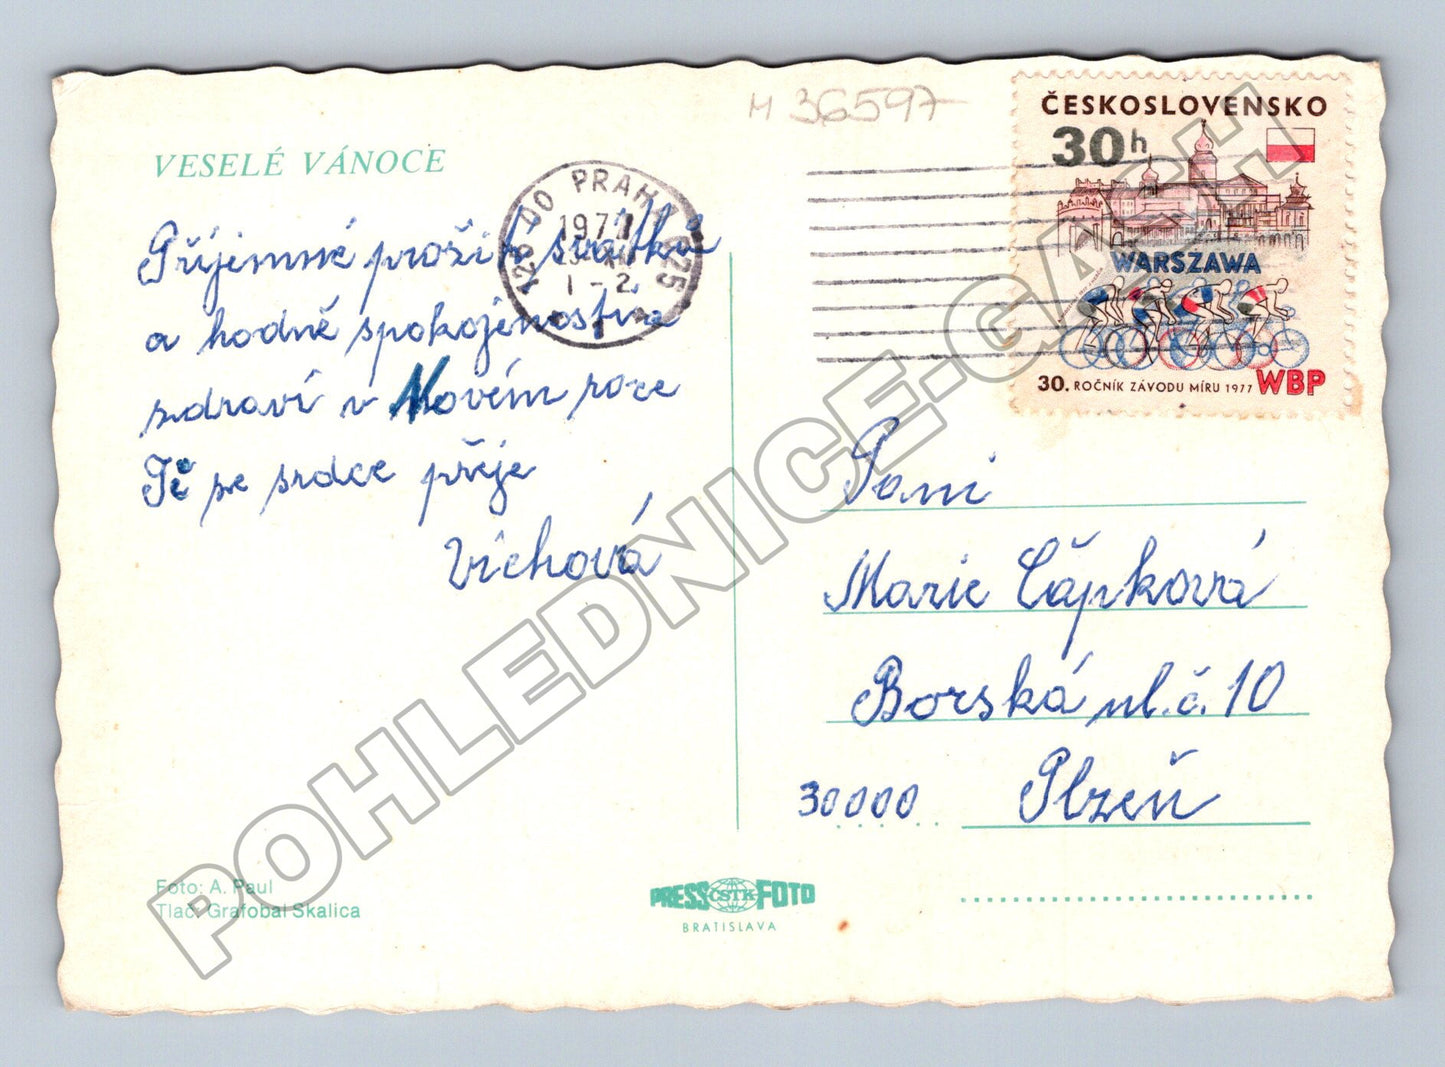 M 36597
VESELÉ VÁNOCE
Příjemné prožití svátků
a hodně spokojenosti a
zdraví v Novém roce
Tě ze srdce přeje
Víchová
120 DO PRAHA 025
1977
1 - 2
ČESKOSLOVENSKO
30h
WARSZAWA
30. ROČNÍK ZÁVODU MÍRU 1977 WBP
Paní
Marie Čápková
Borská ul. č. 10
30000 Plzeň
Foto: A. Paul
Tlač: Grafobal Skalica
PRESS ČSTK FOTO
BRATISLAVA
POHLEDNICE-CACH